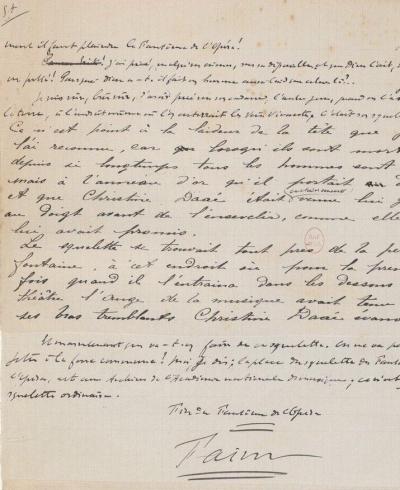 57
ment il faut plaindre le Fantôme de l'Opéra!
j'ai prié, malgré ses crimes, sur sa dépouille et que Dieu l'ait
en pitié! Pourquoi Dieu a-t-il fait un homme aussi laid que celui-là?..
Je suis sûr, bien sûr, d'avoir prié sur son cadavre, l'autre jour, quand on l'a
la terre, à l'endroit même où l'on enterrait les voix vivantes; c'était son sque
Ce n'est point à la laideur de la tête que je
l'ai reconnu, car lorsqu'ils sont mort
depuis si longtemps tous les hommes sont
mais à l'anneau d'or qu'il portait
et que Christine Daaé était certainement venue lui g
au doigt avant de l'ensevelir, comme elle
lui avait promis.
Le squelette se trouvait tout près de la pe
fontaine, à cet endroit où, pour la prem
fois quand il l'entraîna dans les dessous
théâtre l'Ange de la musique avait tenu
ses bras tremblants Christine Daaé évano
Et maintenant que va-t-on faire de ce squelette. On ne va pas
jeter à la fosse commune! moi, je dis: la place du squelette du Fant
l'Opéra, est aux Archives de l'Académie nationale de musique; ce n'est
squelette ordinaire.
Fin du Fantôme de l'Opéra